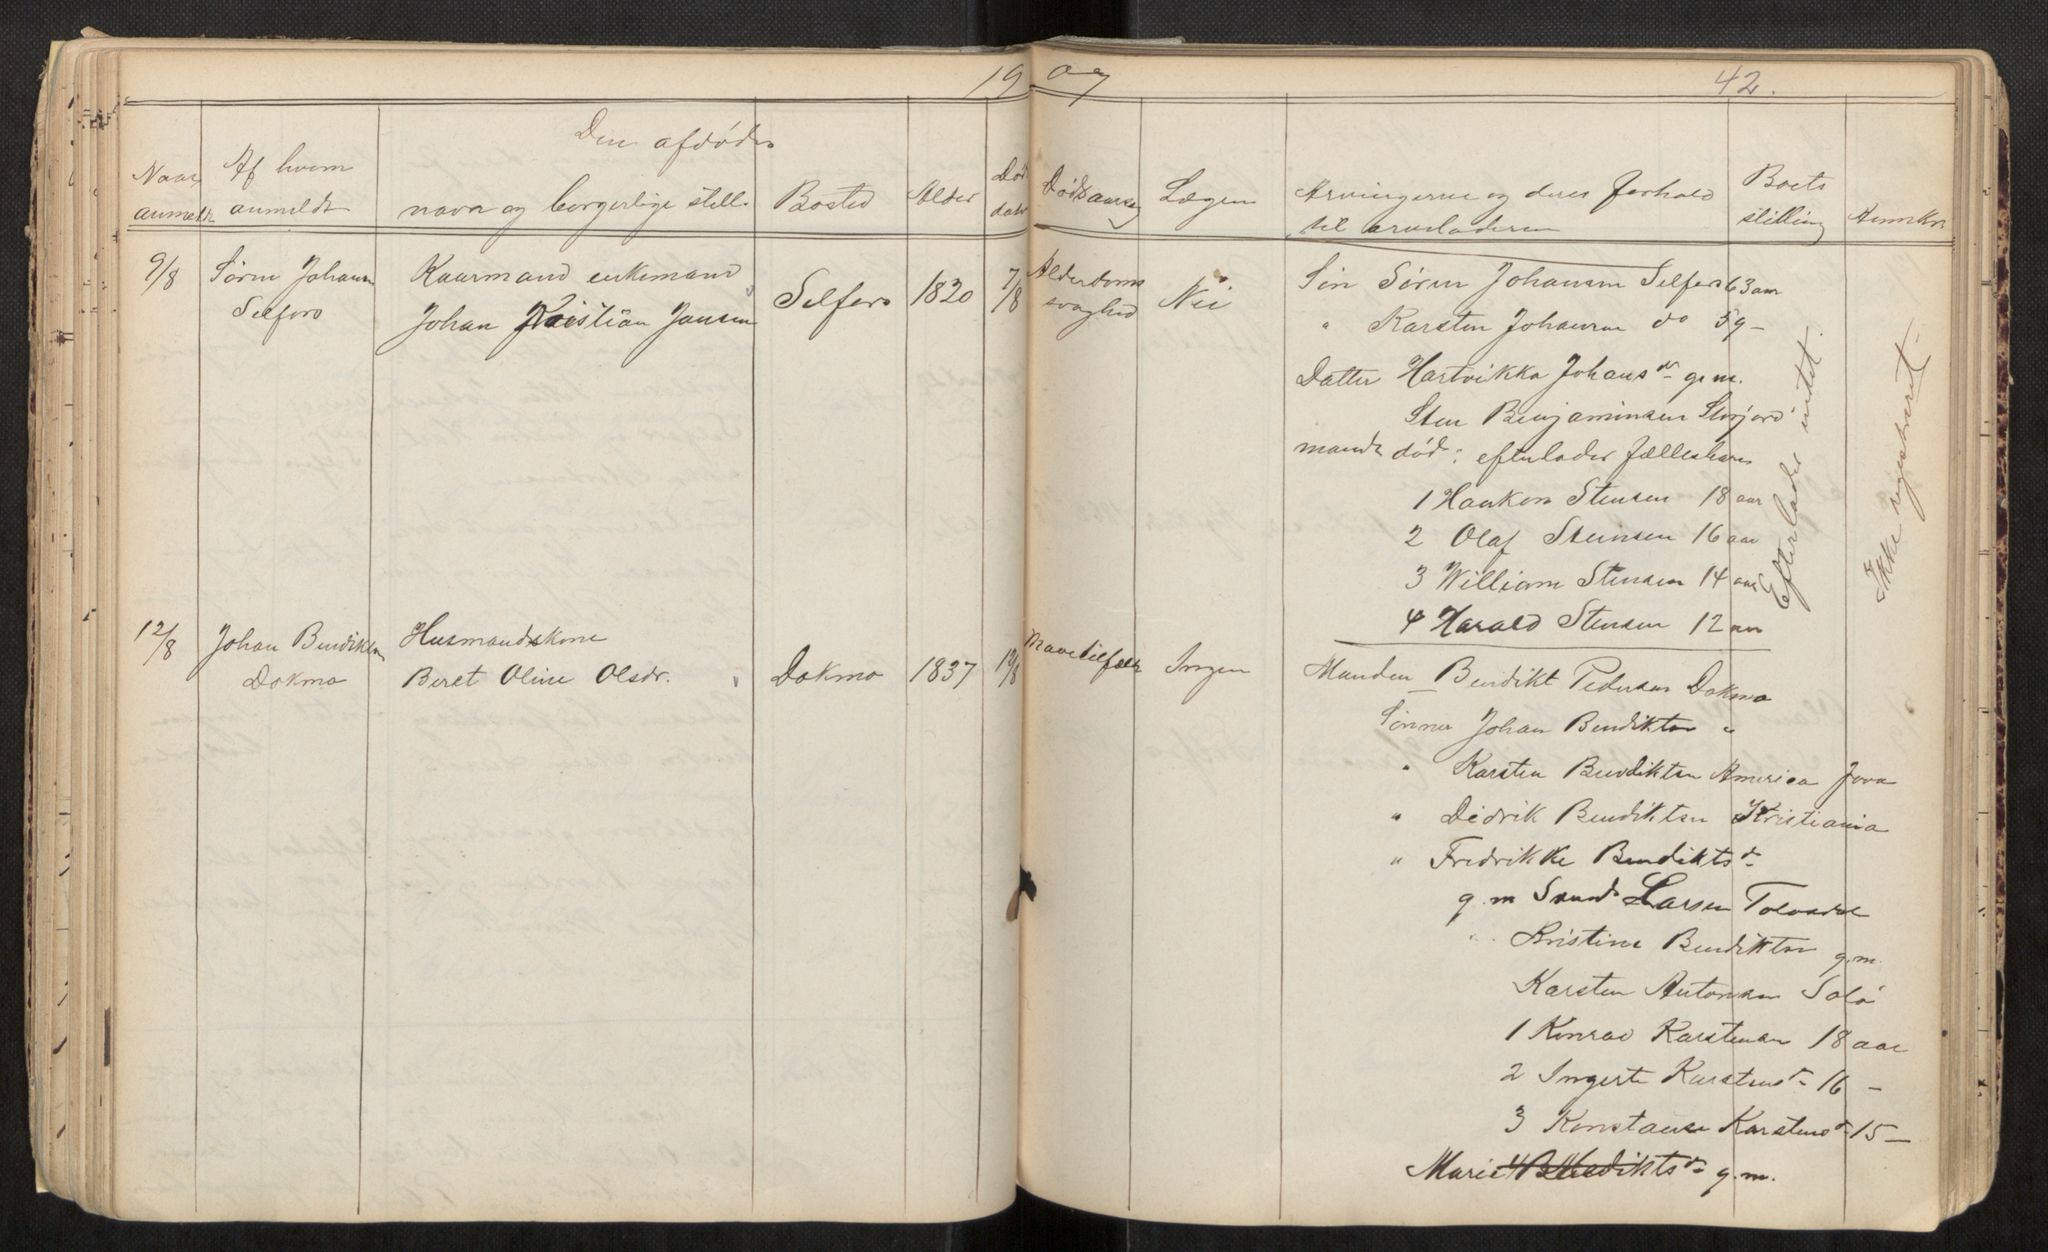 19 07
42.
Den afdødes
Naar anmeldt
Af hvem anmeldt
navn og borgerlige still.
Bosted
Alder
Død dato
Dødsaarsag
Lægen
Arvingerne og deres forhold
til arveladeren
Boets stilling
Anmkn
9/8
Søren Johansen
Selfors
Kaarmand enkemand
Johan Kristian Jansen
Selfors
1820
7/8
Alderdoms
svaghed
Nei
Søn Søren Johansen Selfors 63 aar
" Karsten Johansen do 59 -
Datter Hartvikka Johansdr g. m.
Sten Benjaminsen Storjord
manden død: efterlader fællesbarn
1 Haakon Stensen 18 aar
2 Olaf Stensen 16 aar
3 William Stensen 14 aar
4 Harald Stensen 12 aar
Efterlader intet.
Ikke registreret -
12/8
Johan Bendiktsen
Dokmo
Husmandskone
Beret Oline Olsdr.
Dokmo
1837
12/8
Mavetilfælde
Ingen
Manden Bendikt Pedersen Dokmo
Sønner Johan Bendiktsen "
" Karsten Bendiktsen America Jova
" Didrik Bendiktsen Kristiania
" Fredrikke Bendiktsdr
g. m Svend Larsen
" Kristine Bendiktsen g. m.
Karsten Antonsen
1 Konrad Karstensen 18 aar
2 Ingerte Karstensdr 16 -
3 Konstanse Karstensdr 15 -
Marie Bendiktsdr g. m.